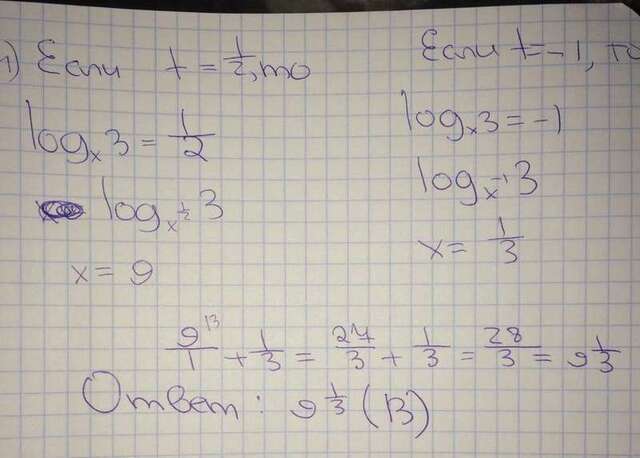 1) Если t = 1/2, то
log_x 3 = 1/2
log_x^1/2 3
x = 9
Если t = -1, то
log_x 3 = -1
log_x^-1 3
x = 1/3
9^13/1 + 1/3 = 27/3 + 1/3 = 28/3 = 9 1/3
Ответ: 9 1/3 (B)